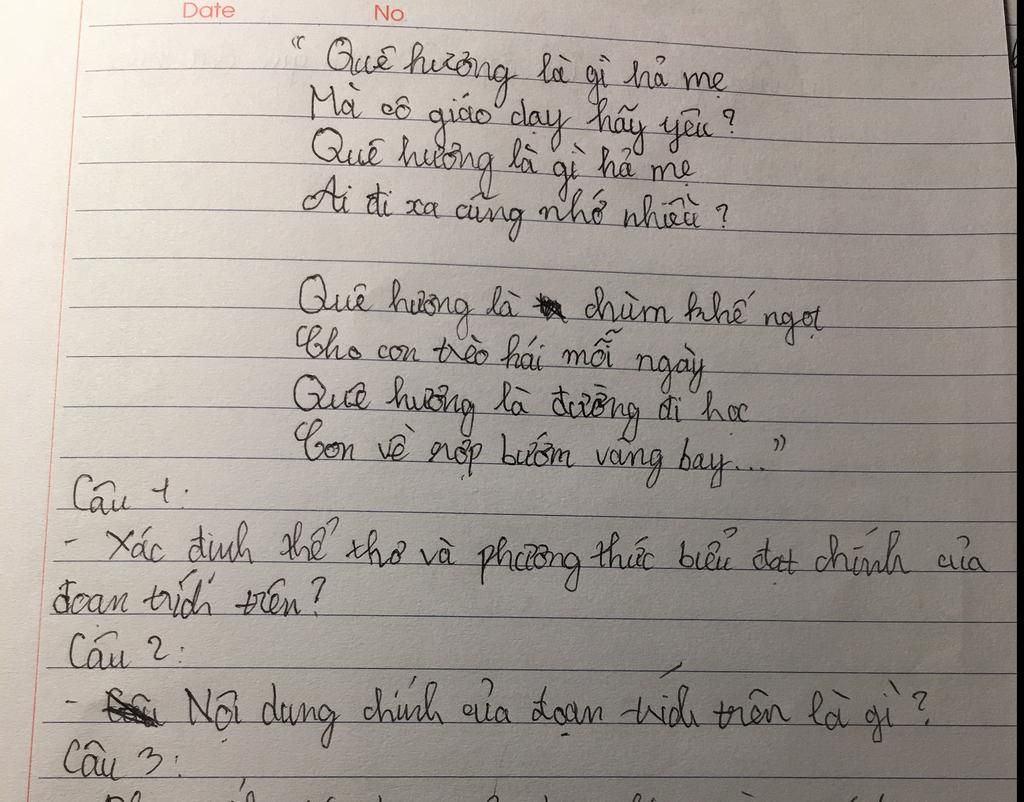 Date No
“ Quê hương là gì hả mẹ
Mà cô giáo dạy hãy yêu ?
Quê hương là gì hả mẹ
Ai đi xa cũng nhớ nhiều ?
Quê hương là chùm khế ngọt
Cho con trèo hái mỗi ngày
Quê hương là đường đi học
Con về rợp bướm vàng bay... ”
Câu 1:
- Xác định thể thơ và phương thức biểu đạt chính của
đoạn trích trên?
Câu 2:
- Nội dung chính của đoạn trích trên là gì?
Câu 3: